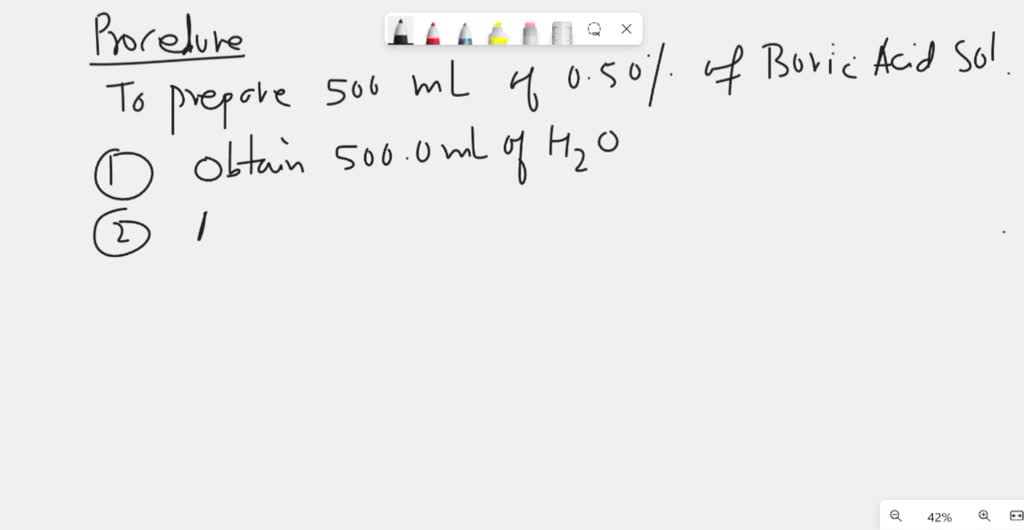 Procedure
To prepare 500 mL of 0.50% of Boric Acid Sol.
① obtain 500.0 mL of H₂O
②
42%